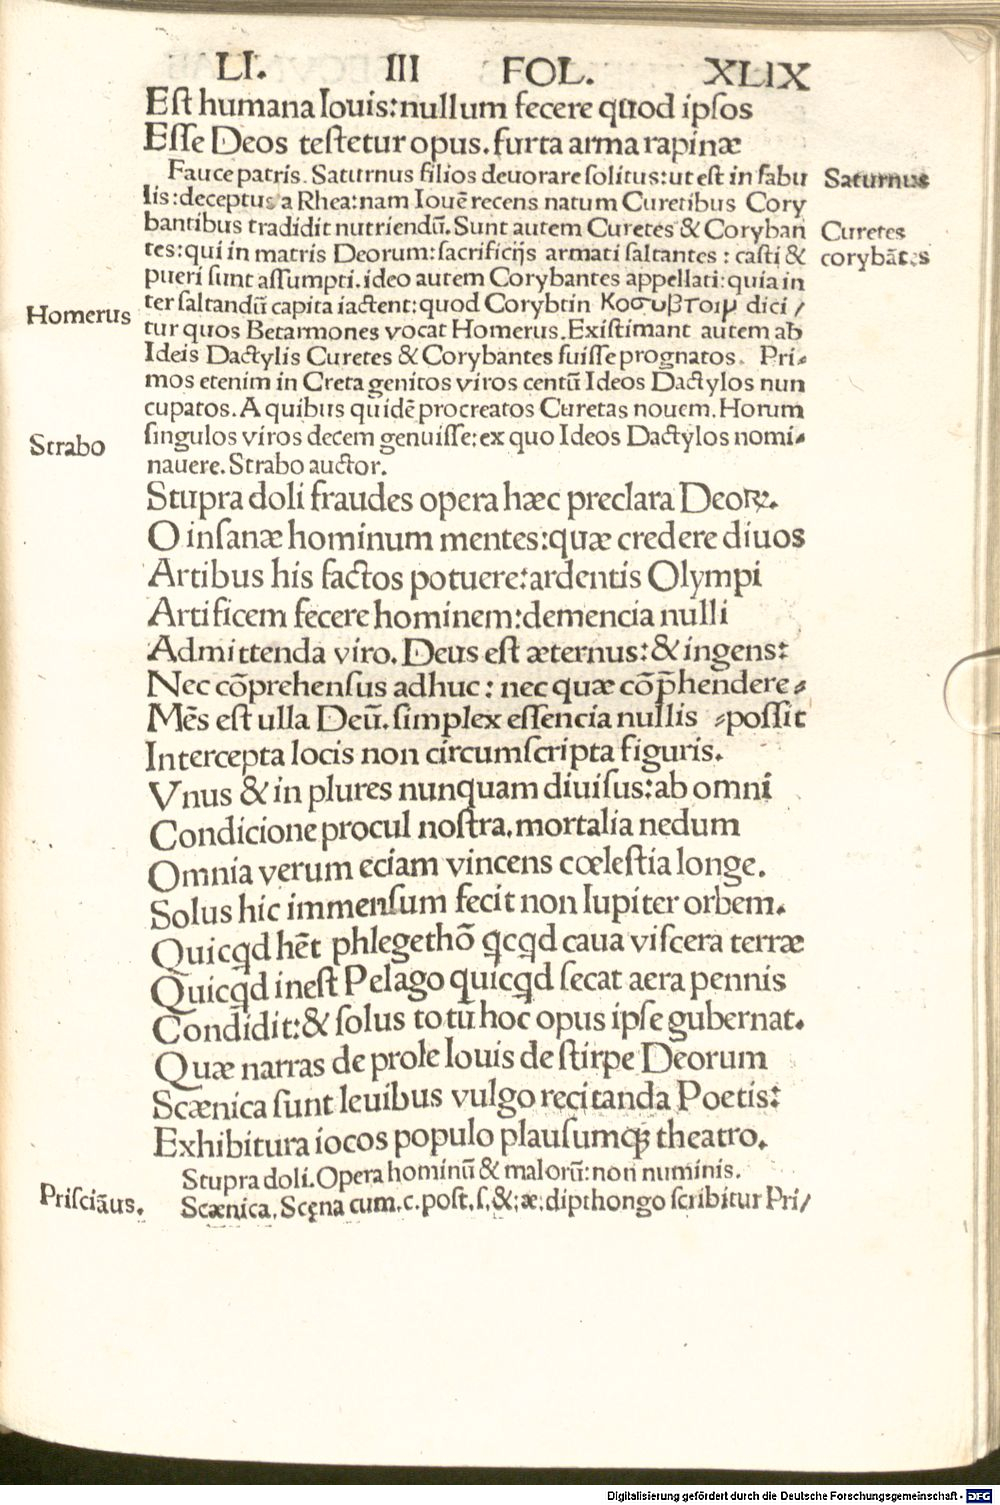 LI. III FOL. XLIX
Eſt humana Iouis: nullum fecere quod ipſos
Eſſe Deos teſtetur opus. furta arma rapinæ
Fauce patris. Saturnus filios deuorare ſolitus: ut eſt in fabu
Saturnus
lis: deceptus a Rhea: nam Iouē recens natum Curetibus Cory
bantibus tradidit nutriendū. Sunt autem Curetes & Coryban
Curetes
tes: qui in matris Deorum: ſacrificijs armati ſaltantes: caſti &
corybātes
pueri ſunt aſſumpti. ideo autem Corybantes appellati: quia in
ter ſaltandū capita iactent: quod Corybtin Κοσυβτοιμ dici /
Homerus
tur quos Betarmones vocat Homerus. Exiſtimant autem ab
Ideis Dactylis Curetes & Corybantes fuiſſe prognatos. Pri⸗
mos etenim in Creta genitos viros centū Ideos Dactylos nun
cupatos. A quibus quidē procreatos Curetas nouem. Horum
ſingulos viros decem genuiſſe: ex quo Ideos Dactylos nomi⸗
Strabo
nauere. Strabo auctor.
Stupra doli fraudes opera hæc preclara Deoꝝ.
O inſanæ hominum mentes: quæ credere diuos
Artibus his factos potuere: ardentis Olympi
Artificem fecere hominem: demencia nulli
Admittenda viro. Deus eſt æternus: & ingens:
Nec cōprehenſus adhuc: nec quæ cōp̄hendere⸗
Mēs eſt ulla Deū. ſimplex eſſencia nullis ⸗poſſit
Intercepta locis non circumſcripta figuris.
Vnus & in plures nunquam diuiſus: ab omni
Condicione procul noſtra. mortalia nedum
Omnia verum eciam vincens cœleſtia longe.
Solus hic immenſum fecit non Iupiter orbem.
Quicq̄d hēt phlegethō q̄cq̄d caua viſcera terræ
Quicq̄d ineſt Pelago quicq̄d ſecat aera pennis
Condidit: & ſolus totū hoc opus ipſe gubernat.
Quæ narras de prole Iouis de ſtirpe Deorum
Scænica ſunt leuibus vulgo recitanda Poetis:
Exhibitura iocos populo plauſumqꝫ theatro.
Stupra doli. Opera hominū & malorū: non numinis.
Priſciāus.
Scænica. Scęna cum. c. poſt. ſ. &; æ. dipthongo ſcribitur Pri/
Digitalisierung gefördert durch die Deutsche Forschungsgemeinschaft - DFG